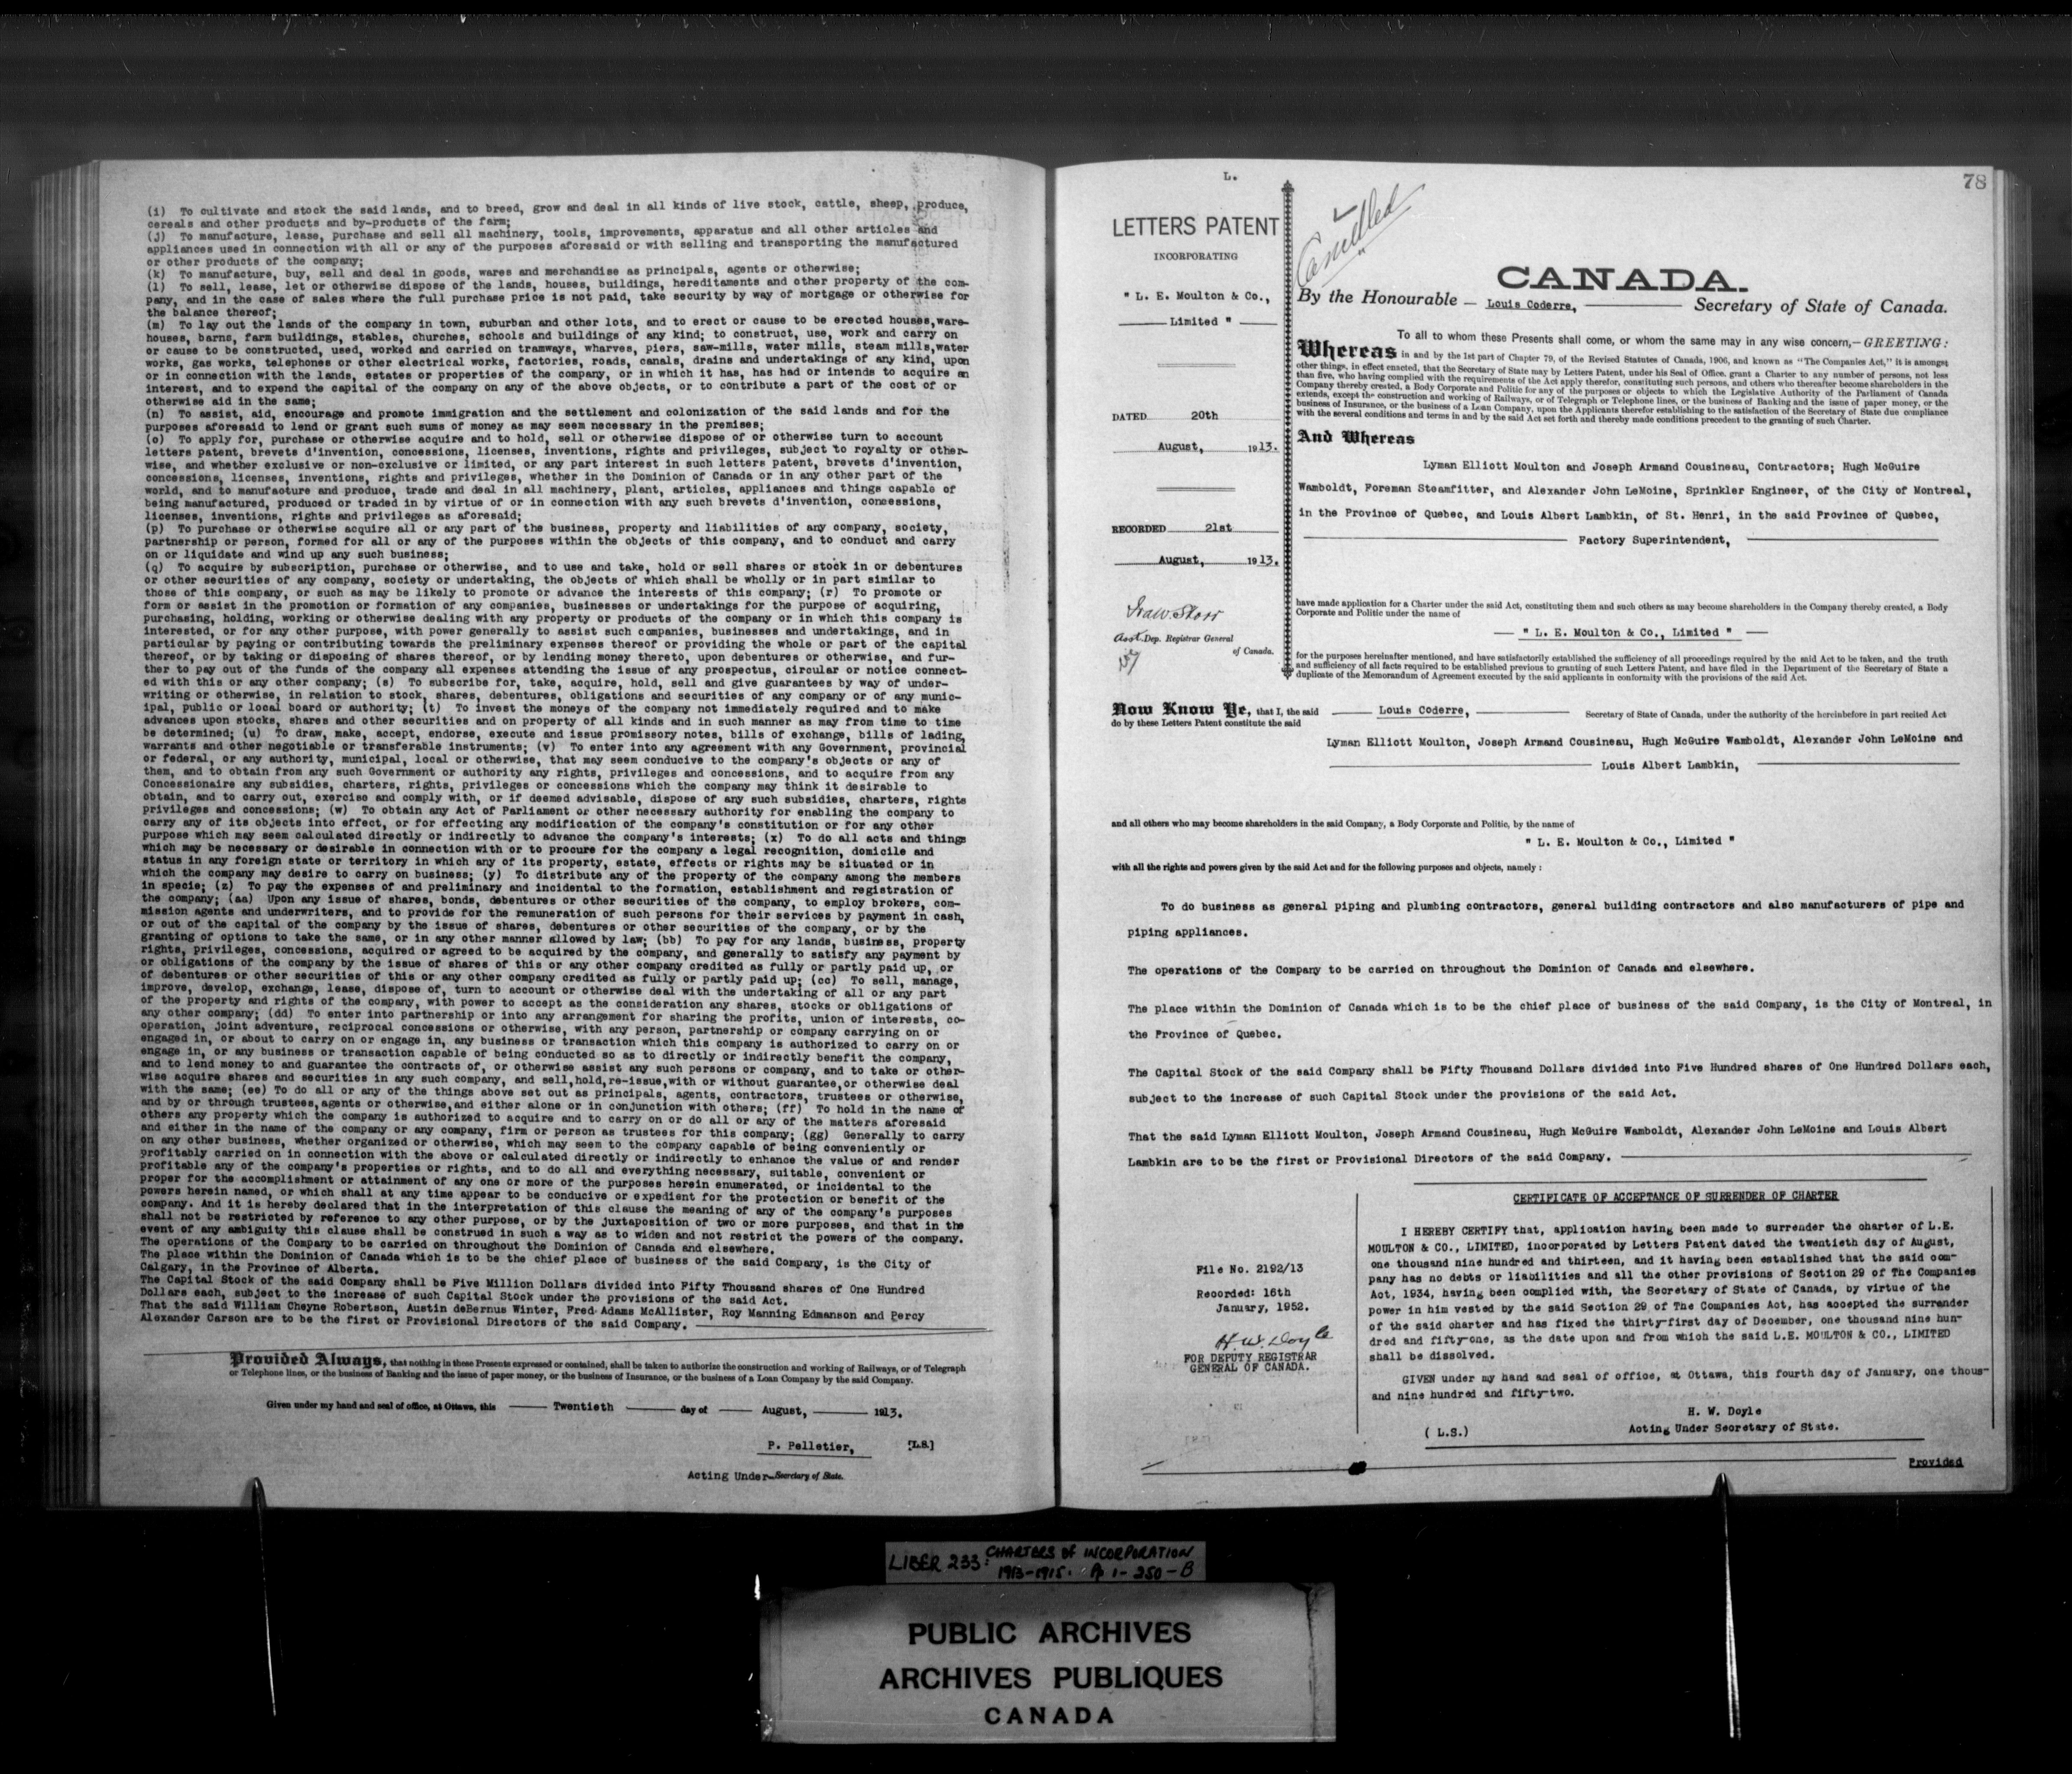 (i) To cultivate and stock the said lands, and to breed, grow and deal in all kinds of live stock, cattle, sheep, produce,
cereals and other products and by-products of the farm;
(j) To manufacture, lease, purchase and sell all machinery, tools, improvements, apparatus and all other articles and
appliances used in connection with all or any of the purposes aforesaid or with selling and transporting the manufactured
or other products of the company;
(k) To manufacture, buy, sell and deal in goods, wares and merchandise as principals, agents or otherwise;
(l) To sell, lease, let or otherwise dispose of the lands, houses, buildings, hereditaments and other property of the com-
pany, and in the case of sales where the full purchase price is not paid, take security by way of mortgage or otherwise for
the balance thereof;
(m) To lay out the lands of the company in town, suburban and other lots, and to erect or cause to be erected houses,ware-
houses, barns, farm buildings, stables, churches, schools and buildings of any kind; to construct, use, work and carry on
or cause to be constructed, used, worked and carried on tramways, wharves, piers, saw-mills, water mills, steam mills,water
works, gas works, telephones or other electrical works, factories, roads, canals, drains and undertakings of any kind, upon
or in connection with the lands, estates or properties of the company, or in which it has, has had or intends to acquire an
interest, and to expend the capital of the company on any of the above objects, or to contribute a part of the cost of or
otherwise aid in the same;
(n) To assist, aid, encourage and promote immigration and the settlement and colonization of the said lands and for the
purposes aforesaid to lend or grant such sums of money as may seem necessary in the premises;
(o) To apply for, purchase or otherwise acquire and to hold, sell or otherwise dispose of or otherwise turn to account
letters patent, brevets d'invention, concessions, licenses, inventions, rights and privileges, subject to royalty or other-
wise, and whether exclusive or non-exclusive or limited, or any part interest in such letters patent, brevets d'invention,
concessions, licenses, inventions, rights and privileges, whether in the Dominion of Canada or in any other part of the
world, and to manufacture and produce, trade and deal in all machinery, plant, articles, appliances and things capable of
being manufactured, produced or traded in by virtue of or in connection with any such brevets d'invention, concessions,
licenses, inventions, rights and privileges as aforesaid;
(p) To purchase or otherwise acquire all or any part of the business, property and liabilities of any company, society,
partnership or person, formed for all or any of the purposes within the objects of this company, and to conduct and carry
on or liquidate and wind up any such business;
(q) To acquire by subscription, purchase or otherwise, and to use and take, hold or sell shares or stock in or debentures
or other securities of any company, society or undertaking, the objects of which shall be wholly or in part similar to
those of this company, or such as may be likely to promote or advance the interests of this company; (r) To promote or
form or assist in the promotion or formation of any companies, businesses or undertakings for the purpose of acquiring,
purchasing, holding, working or otherwise dealing with any property or products of the company or in which this company is
interested, or for any other purpose, with power generally to assist such companies, businesses and undertakings, and in
particular by paying or contributing towards the preliminary expenses thereof or providing the whole or part of the capital
thereof, or by taking or disposing of shares thereof, or by lending money thereto, upon debentures or otherwise, and fur-
ther to pay out of the funds of the company all expenses attending the issue of any prospectus, circular or notice connect-
ed with this or any other company; (s) To subscribe for, take, acquire, hold, sell and give guarantees by way of under-
writing or otherwise, in relation to stock, shares, debentures, obligations and securities of any company or of any munic-
ipal, public or local board or authority; (t) To invest the moneys of the company not immediately required and to make
advances upon stocks, shares and other securities and on property of all kinds and in such manner as may from time to time
be determined; (u) To draw, make, accept, endorse, execute and issue promissory notes, bills of exchange, bills of lading,
warrants and other negotiable or transferable instruments; (v) To enter into any agreement with any Government, provincial
or federal, or any authority, municipal, local or otherwise, that may seem conducive to the company's objects or any of
them, and to obtain from any such Government or authority any rights, privileges and concessions, and to acquire from any
Concessionaire any subsidies, charters, rights, privileges or concessions which the company may think it desirable to
obtain, and to carry out, exercise and comply with, or if deemed advisable, dispose of any such subsidies, charters, rights
privileges and concessions; (w) To obtain any Act of Parliament or other necessary authority for enabling the company to
carry any of its objects into effect, or for effecting any modification of the company's constitution or for any other
purpose which may seem calculated directly or indirectly to advance the company's interests; (x) To do all acts and things
which may be necessary or desirable in connection with or to procure for the company a legal recognition, domicile and
status in any foreign state or territory in which any of its property, estate, effects or rights may be situated or in
which the company may desire to carry on business; (y) To distribute any of the property of the company among the members
in specie; (z) To pay the expenses of and preliminary and incidental to the formation, establishment and registration of
the company; (aa) Upon any issue of shares, bonds, debentures or other securities of the company, to employ brokers, com-
mission agents and underwriters, and to provide for the remuneration of such persons for their services by payment in cash,
or out of the capital of the company by the issue of shares, debentures or other securities of the company, or by the
granting of options to take the same, or in any other manner allowed by law; (bb) To pay for any lands, business, property
rights, privileges, concessions, acquired or agreed to be acquired by the company, and generally to satisfy any payment by
or obligations of the company by the issue of shares of this or any other company credited as fully or partly paid up, or
of debentures or other securities of this or any other company credited as fully or partly paid up; (cc) To sell, manage,
improve, develop, exchange, lease, dispose of, turn to account or otherwise deal with the undertaking of all or any part
of the property and rights of the company, with power to accept as the consideration any shares, stocks or obligations of
any other company; (dd) To enter into partnership or into any arrangement for sharing the profits, union of interests, co-
operation, joint adventure, reciprocal concessions or otherwise, with any person, partnership or company carrying on or
engaged in, or about to carry on or engage in, any business or transaction which this company is authorized to carry on or
engage in, or any business or transaction capable of being conducted so as to directly or indirectly benefit the company,
and to lend money to and guarantee the contracts of, or otherwise assist any such persons or company, and to take or other-
wise acquire shares and securities in any such company, and sell,hold,re-issue,with or without guarantee,or otherwise deal
with the same; (ee) To do all or any of the things above set out as principals, agents, contractors, trustees or otherwise,
and by or through trustees,agents or otherwise,and either alone or in conjunction with others; (ff) To hold in the name of
others any property which the company is authorized to acquire and to carry on or do all or any of the matters aforesaid
and either in the name of the company or any company, firm or person as trustees for this company; (gg) Generally to carry
on any other business, whether organized or otherwise, which may seem to the company capable of being conveniently or
profitably carried on in connection with the above or calculated directly or indirectly to enhance the value of and render
profitable any of the company's properties or rights, and to do all and everything necessary, suitable, convenient or
proper for the accomplishment or attainment of any one or more of the purposes herein enumerated, or incidental to the
powers herein named, or which shall at any time appear to be conducive or expedient for the protection or benefit of the
company. And it is hereby declared that in the interpretation of this clause the meaning of any of the company's purposes
shall not be restricted by reference to any other purpose, or by the juxtaposition of two or more purposes, and that in the
event of any ambiguity this clause shall be construed in such a way as to widen and not restrict the powers of the company.
The operations of the Company to be carried on throughout the Dominion of Canada and elsewhere.
The place within the Dominion of Canada which is to be the chief place of business of the said Company, is the City of
Calgary, in the Province of Alberta.
The Capital Stock of the said Company shall be Five Million Dollars divided into Fifty Thousand shares of One Hundred
Dollars each, subject to the increase of such Capital Stock under the provisions of the said Act.
That the said William Cheyne Robertson, Austin deBernus Winter, Fred Adams McAllister, Roy Manning Edmanson and Percy
Alexander Carson are to be the first or Provisional Directors of the said Company.
Provided Always, that nothing in these Presents expressed or contained, shall be taken to authorize the construction and working of Railways, or of Telegraph
or Telephone lines, or the business of Banking and the issue of paper money, or the business of Insurance, or the business of a Loan Company by the said Company.
Given under my hand and seal of office, at Ottawa, this Twentieth day of August, 1913.
P. Pelletier, [L.S.]
Acting Under-Secretary of State.
78
L.
LETTERS PATENT
INCORPORATING
" L. E. Moulton & Co.,
Limited "
DATED 20th
August, 1913.
RECORDED 21st
August, 1913.
Asst. Dep. Registrar General
of Canada.
Cancelled
CANADA.
By the Honourable Louis Coderre, Secretary of State of Canada.
To all to whom these Presents shall come, or whom the same may in any wise concern,—GREETING:
Whereas in and by the 1st part of Chapter 79, of the Revised Statutes of Canada, 1906, and known as "The Companies Act," it is amongst
other things, in effect enacted, that the Secretary of State may by Letters Patent, under his Seal of Office, grant a Charter to any number of persons, not less
than five, who having complied with the requirements of the Act apply therefor, constituting such persons, and others who thereafter become shareholders in the
Company thereby created, a Body Corporate and Politic for any of the purposes or objects to which the Legislative Authority of the Parliament of Canada
extends, except the construction and working of Railways, or of Telegraph or Telephone lines, or the business of Banking and the issue of paper money, or the
business of Insurance, or the business of a Loan Company, upon the Applicants therefor establishing to the satisfaction of the Secretary of State due compliance
with the several conditions and terms in and by the said Act set forth and thereby made conditions precedent to the granting of such Charter.
And Whereas
Lyman Elliott Moulton and Joseph Armand Cousineau, Contractors; Hugh McGuire
Wamboldt, Foreman Steamfitter, and Alexander John LeMoine, Sprinkler Engineer, of the City of Montreal,
in the Province of Quebec, and Louis Albert Lambkin, of St. Henri, in the said Province of Quebec,
Factory Superintendent,
have made application for a Charter under the said Act, constituting them and such others as may become shareholders in the Company thereby created, a Body
Corporate and Politic under the name of
" L. E. Moulton & Co., Limited "
for the purposes hereinafter mentioned, and have satisfactorily established the sufficiency of all proceedings required by the said Act to be taken, and the truth
and sufficiency of all facts required to be established previous to granting of such Letters Patent, and have filed in the Department of the Secretary of State a
duplicate of the Memorandum of Agreement executed by the said applicants in conformity with the provisions of the said Act.
Now Know Ye, that I, the said Louis Coderre, Secretary of State of Canada, under the authority of the hereinbefore in part recited Act
do by these Letters Patent constitute the said
Lyman Elliott Moulton, Joseph Armand Cousineau, Hugh McGuire Wamboldt, Alexander John LeMoine and
Louis Albert Lambkin,
and all others who may become shareholders in the said Company, a Body Corporate and Politic, by the name of
" L. E. Moulton & Co., Limited "
with all the rights and powers given by the said Act and for the following purposes and objects, namely :
To do business as general piping and plumbing contractors, general building contractors and also manufacturers of pipe and
piping appliances.
The operations of the Company to be carried on throughout the Dominion of Canada and elsewhere.
The place within the Dominion of Canada which is to be the chief place of business of the said Company, is the City of Montreal, in
the Province of Quebec.
The Capital Stock of the said Company shall be Fifty Thousand Dollars divided into Five Hundred shares of One Hundred Dollars each,
subject to the increase of such Capital Stock under the provisions of the said Act.
That the said Lyman Elliott Moulton, Joseph Armand Cousineau, Hugh McGuire Wamboldt, Alexander John LeMoine and Louis Albert
Lambkin are to be the first or Provisional Directors of the said Company.
File No. 2192/13
Recorded: 16th
January, 1952.
H.W. Doyle
FOR DEPUTY REGISTRAR
GENERAL OF CANADA.
CERTIFICATE OF ACCEPTANCE OF SURRENDER OF CHARTER
I HEREBY CERTIFY that, application having been made to surrender the charter of L.E.
MOULTON & CO., LIMITED, incorporated by Letters Patent dated the twentieth day of August,
one thousand nine hundred and thirteen, and it having been established that the said com-
pany has no debts or liabilities and all the other provisions of Section 29 of The Companies
Act, 1934, having been complied with, the Secretary of State of Canada, by virtue of the
power in him vested by the said Section 29 of The Companies Act, has accepted the surrender
of the said charter and has fixed the thirty-first day of December, one thousand nine hun-
dred and fifty-one, as the date upon and from which the said L.E. MOULTON & CO., LIMITED
shall be dissolved.
GIVEN under my hand and seal of office, at Ottawa, this fourth day of January, one thous-
and nine hundred and fifty-two.
H. W. Doyle
(L.S.) Acting Under Secretary of State.
Provided
LIBER 233: CHARTERS OF INCORPORATION
1913-1915. Pp 1-250-B
PUBLIC ARCHIVES
ARCHIVES PUBLIQUES
CANADA